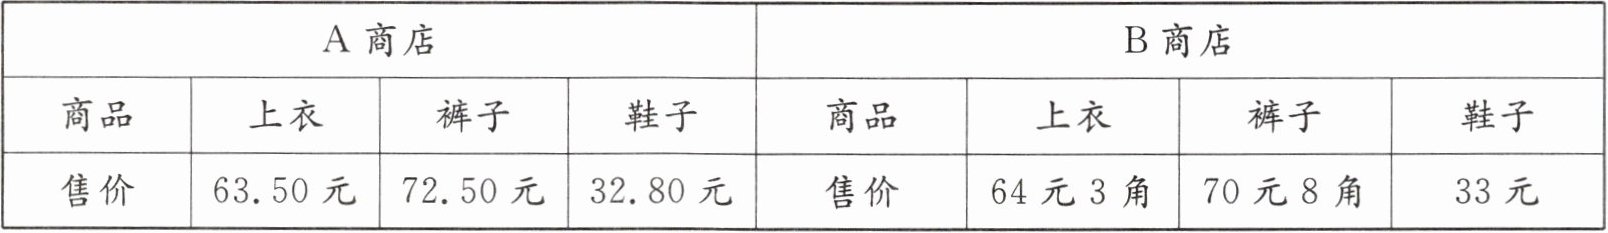 A 商店 B 商店
商品 上衣 裤子 鞋子 商品 上衣 裤子 鞋子
售价 63.50 元 72.50 元 32.80 元 售价 64 元 3 角 70 元 8 角 33 元